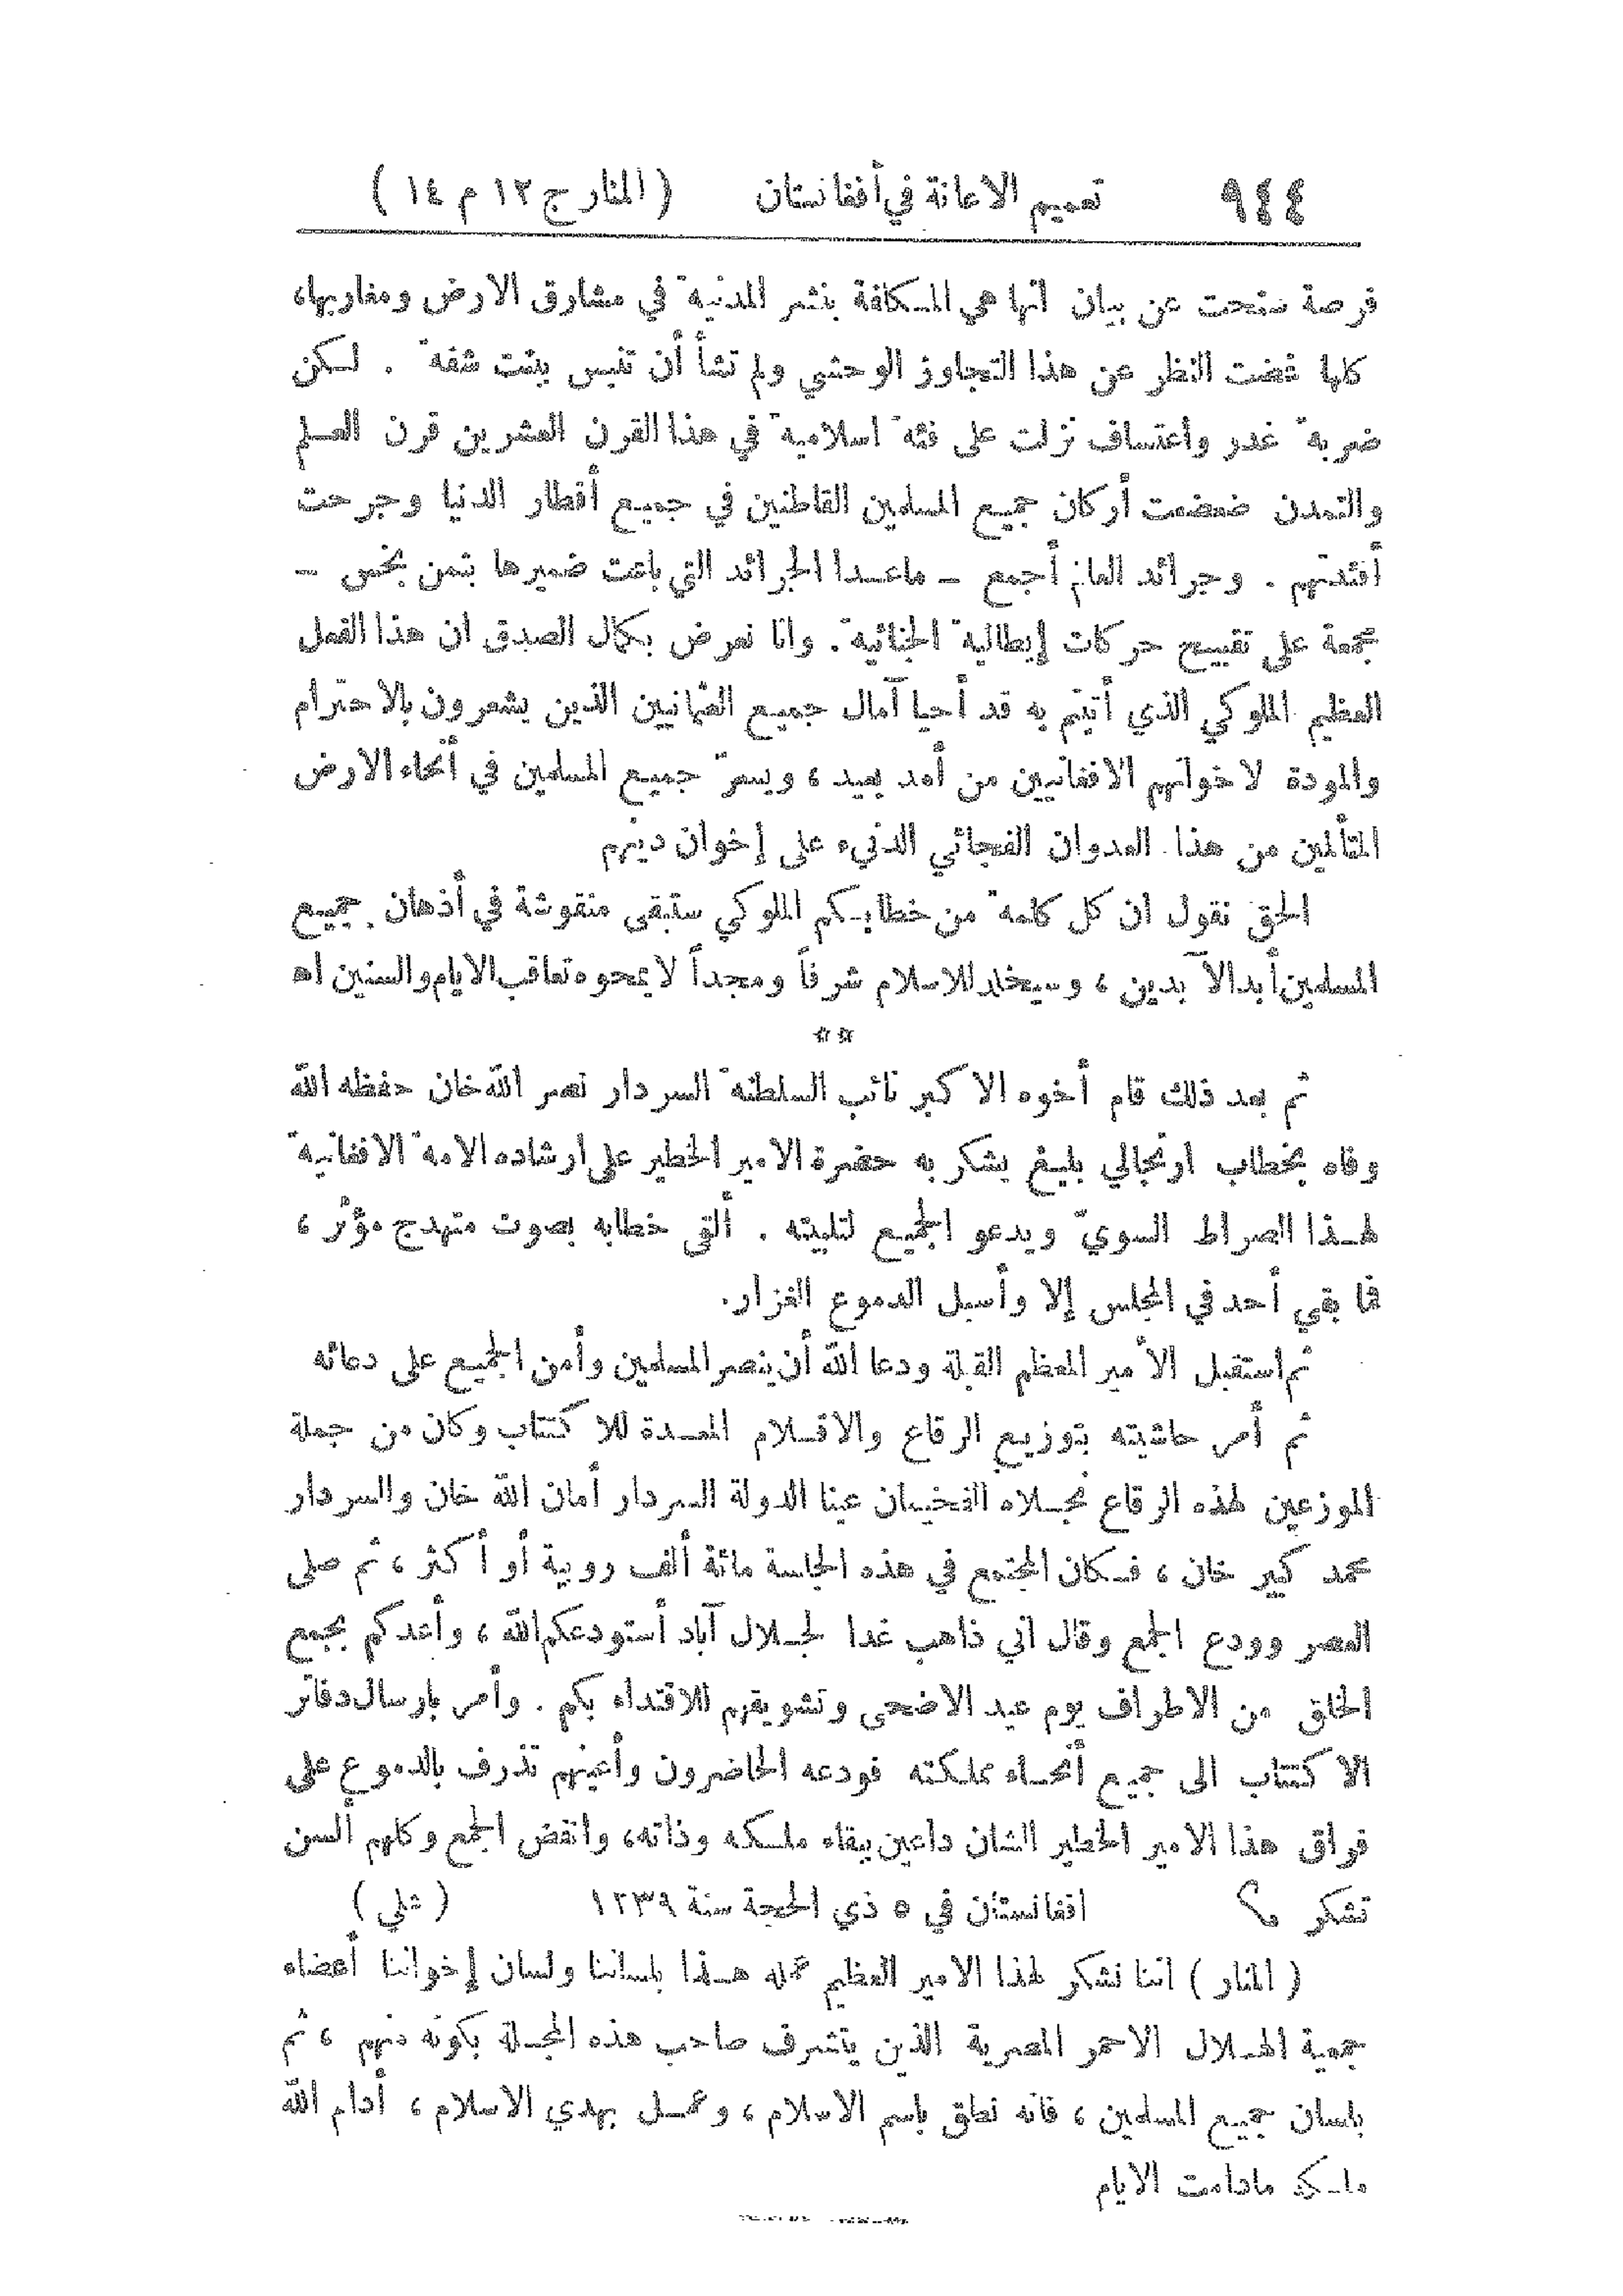 ٩٤٤ تعميم الاعانة في أفغانستان ( المنار ج ١٢ م ١٤ )
فرصة سنحت عن بيان انها هي المكافة بنشر المدنية في مشارق الارض ومغاربها،
كلها غضت النظر عن هذا التجاوز الوحشي ولم تشأ أن تنبس ببنت شفة . لكن
ضربة غدر واعتساف نزلت على فئة اسلامية في هذا القرن العشرين قرن العلم
والتمدن ضعضعت أركان جميع المسلمين القاطنين في جميع أقطار الدنيا وجرحت
أفئدتهم . وجرائد العالم أجمع – ماعدا الجرائد التي باعت ضميرها بثمن بخس –
مجمعة على تقبيح حركات إيطالية الجنائية . وانا نعرض بكمال الصدق ان هذا الفعل
العظيم الملوكي الذي أتيتم به قد أحيا آمال جميع العثمانيين الذين يشعرون بالاحترام
والمودة لاخوانهم الافغانيين من أمد بعيد ، ويسرّ جميع المسلمين في أنحاء الارض
المتألمين من هذا العدوان الفجائي الدنيء على إخوان دينهم
الحق نقول ان كل كلمة من خطابكم الملوكي ستبقى منقوشة في أذهان جميع
المسلمين أبد الآبدين ، وسيخلد للاسلام شرفاً ومجداً لا يمحوه تعاقب الايام والسنين اه
**
ثم بعد ذلك قام أخوه الاكبر نائب السلطنة السردار نصر الله خان حفظه الله
وفاه بخطاب ارتجالي بليغ يشكر به حضرة الامير الخطير على ارشاده الامة الافغانية
لهذا الصراط السويّ ويدعو الجميع لتلبيته . ألقى خطابه بصوت متهدج مؤثر ،
فما بقي أحد في المجلس إلا وأسبل الدموع الغزار.
ثم استقبل الأمير المعظم القبلة ودعا الله أن ينصر المسلمين وأمن الجميع على دعائه
ثم أمر حاشيته بتوزيع الرقاع والاقلام المعدة للاكتتاب وكان من جملة
الموزعين لهذه الرقاع نجلاه الفخيمان عينا الدولة السردار أمان الله خان والسردار
محمد كبير خان ، فكان المجتمع في هذه الجلسة مائة ألف روبية أو أكثر ، ثم صلى
العصر وودع الجمع وقال اني ذاهب غدا لجلال آباد أستودعكم الله ، وأعدكم بجمع
الخلق من الاطراف يوم عيد الاضحى وتشويقهم للاقتداء بكم . وأمر بارسال دفاتر
الاكتتاب الى جميع أنحاء مملكته فودعه الحاضرون وأعينهم تذرف بالدموع على
فراق هذا الامير الخطير الشان داعين ببقاء ملكه وذاته، وانفض الجمع وكلهم ألسن
تشكر افغانستان في ٥ ذي الحجة سنة ١٢٣٩ ( شلي )
( المنار ) اننا نشكر لهذا الامير العظيم عمله هذا بلساننا ولسان إخواننا أعضاء
جمعية الهلال الاحمر المصرية الذين يتشرف صاحب هذه المجلة بكونه منهم ، ثم
بلسان جميع المسلمين ، فانه نطق باسم الاسلام ، وعمل بهدي الاسلام ، أدام الله
ملكه مادامت الايام